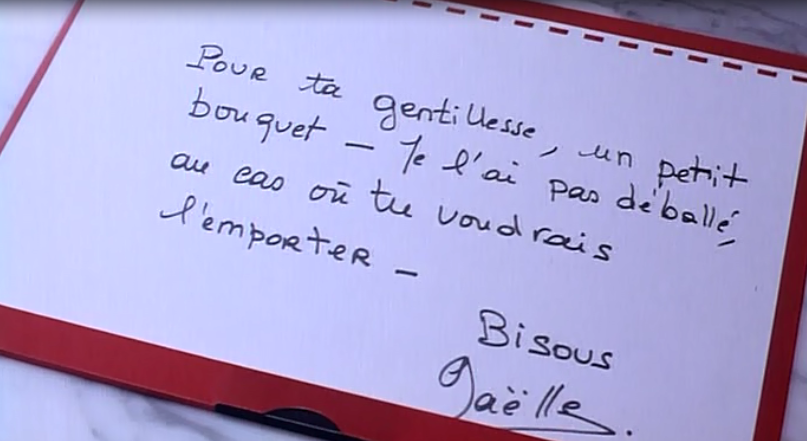 Pour ta gentillesse, un petit
bouquet - Je l'ai pas déballé,
au cas où tu voudrais
l'emporter -
Bisous
Gaëlle.